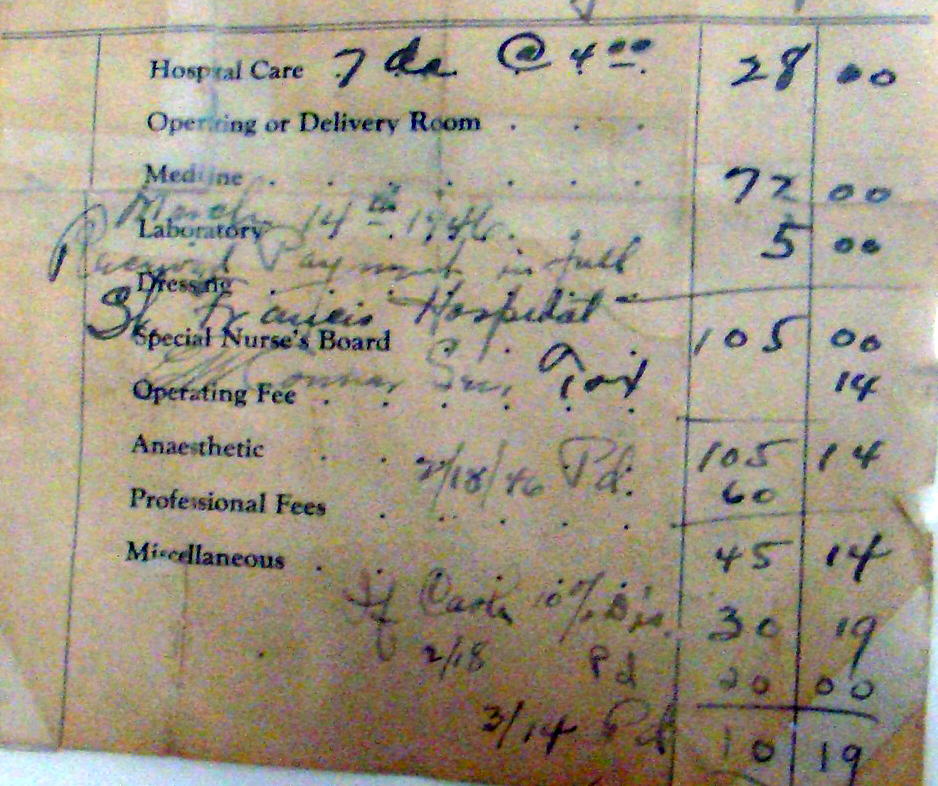 Hospital Care 7 da @ 4 00 28 00
Operating or Delivery Room
Medicine 72 00
March 14th 1946.
Laboratory 5 00
Received Payment in full
Dressing
St Francis Hospital
Special Nurse's Board 105 00
Tax 14
Operating Fee
Anaesthetic 105 14
2/18/46 Pd. 60
Professional Fees
Miscellaneous 45 14
If Cash 10% Dis. 30 19
2/18 Pd 20 00
3/14 Pd 10 19